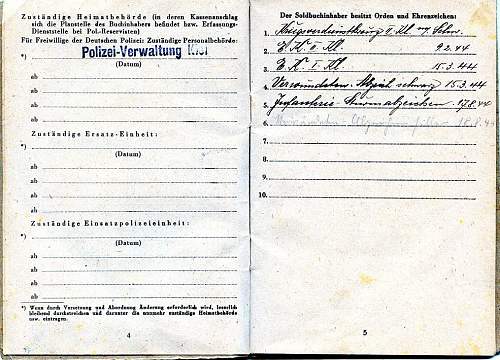 Zuständige Heimatbehörde (in deren Kassenanschlag
sich die Planstelle des Buchinhabers befindet bzw. Erfassungs-
Dienststelle bei Pol.-Reservisten)
Für Freiwillige der Deutschen Polizei: Zuständige Personalbehörde:
*) Polizei-Verwaltung Kiel
(Datum)
ab
ab
ab
ab
Zuständige Ersatz-Einheit:
*)
(Datum)
ab
ab
ab
ab
Zuständige Einsatzpolizeieinheit:
*)
(Datum)
ab
ab
ab
ab
*) Wenn durch Versetzung und Abordnung Änderung erforderlich wird, leserlich
bleibend durchstreichen und darunter die nunmehr zuständige Heimatbehörde
usw. eintragen.
4
Der Soldbuchinhaber besitzt Orden und Ehrenzeichen:
1. Kriegsverdienstkreuz II. Kl. m. Schw.
2. E. K. II. Kl. 9.2.44
3. E. K. I. Kl. 15.3.44
4. Verwundeten-Abzeich. schwarz 15.3.44
5. Infanterie-Sturmabzeichen 17.8.44
6. Verwundeten-Abzeichen silber 18.8.44
7.
8.
9.
10.
5